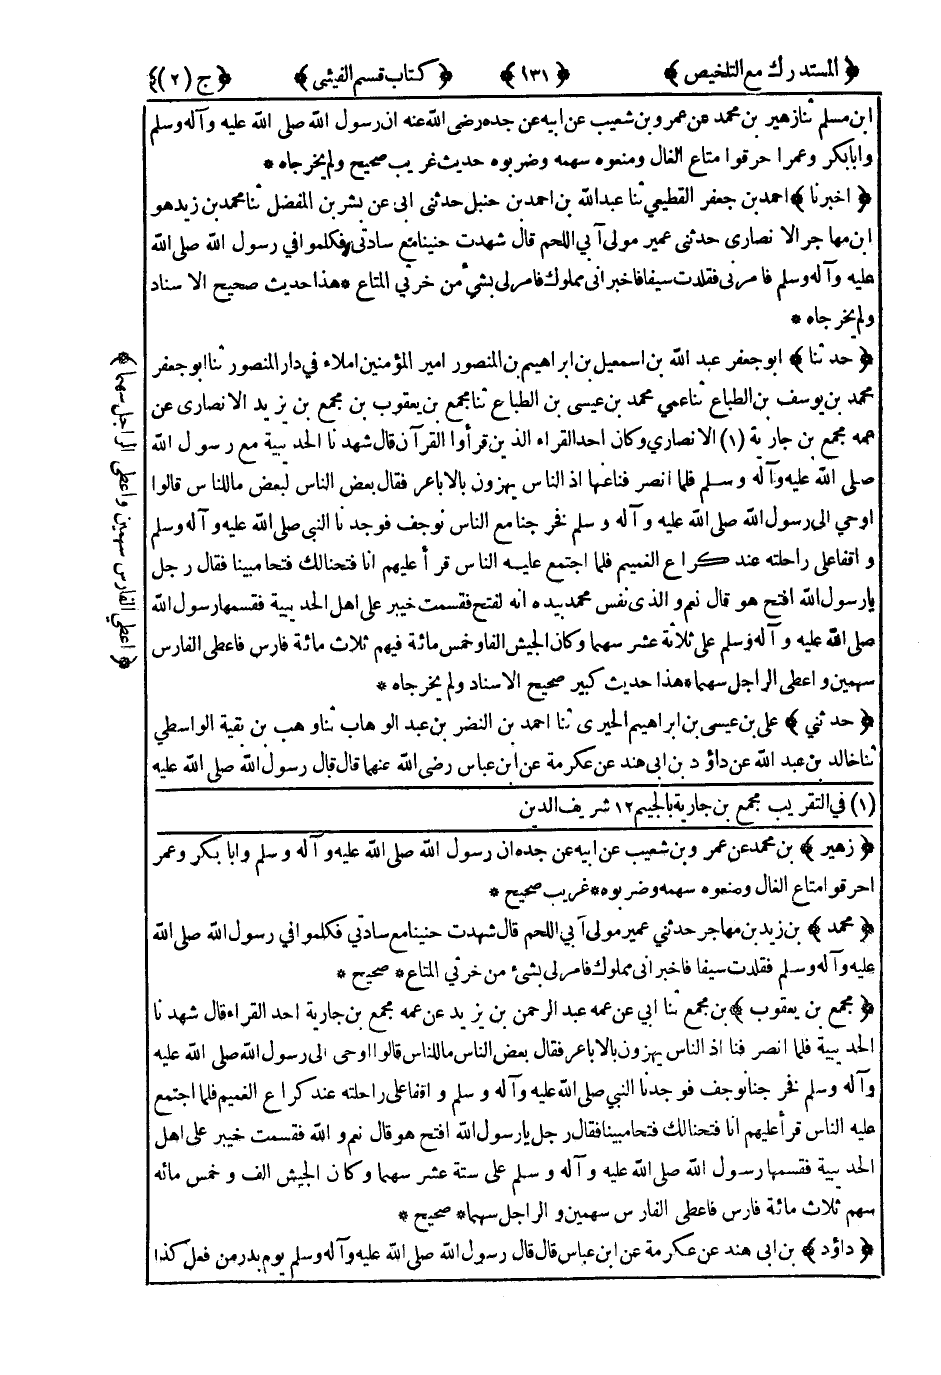 ﴿ المستدرك مع التلخيص ﴾ ﴿ ١٣١ ﴾ ﴿ كتاب قسم الفيئى ﴾ ﴿ ج (٢) ﴾
ابن مسلم ثنا زهير بن محمد عن عمرو بن شعيب عن ابيه عن جده رضى الله عنه ان رسول الله صلى الله عليه وآله وسلم
وابابكر وعمرا حرقوا متاع الغال ومنعوه سهمه وضربوه حديث غريب صحيح ولم يخرجاه *
﴿ اخبرنا ﴾ احمد بن جعفر القطيعي ثنا عبد الله بن احمد بن حنبل حدثنى ابى عن بشر بن المفضل ثنا محمد بن زيد هو
ابن مهاجر الانصارى حدثنى عمير مولى آبي اللحم قال شهدت حنينا مع سادتى فكلموا في رسول الله صلى الله
عليه وآله وسلم فامرنى فقلدت سيفا فاخبر انى مملوك فامر لى بشئ من خرثي المتاع * هذا حديث صحيح الاسناد
ولم يخرجاه *
﴿ حدثنا ﴾ ابو جعفر عبد الله بن اسمعيل بن ابراهيم بن المنصور امير المؤمنين املاء في دار المنصور ثنا ابو جعفر
محمد بن يوسف بن الطباع ثنا عمي محمد بن عيسى بن الطباع ثنا مجمع بن يعقوب بن مجمع بن يزيد الانصارى عن
عمه مجمع بن جارية (١) الانصاري وكان احد القراء الذين قرأوا القرآن قال شهدنا الحديبية مع رسول الله
صلى الله عليه وآله وسلم فلما انصرفنا عنها اذ الناس يهزون بالاباعر فقال بعض الناس لبعض ما للناس قالوا
اوحي الى رسول الله صلى الله عليه وآله وسلم فخرجنا مع الناس نوجف فوجدنا النبي صلى الله عليه وآله وسلم
واقفا على راحلته عند كراع الغميم فلما اجتمع عليه الناس قرأ عليهم انا فتحنا لك فتحا مبينا فقال رجل
يا رسول الله افتح هو قال نعم والذى نفس محمد بيده انه لفتح فقسمت خيبر على اهل الحديبية فقسمها رسول الله
صلى الله عليه وآله وسلم على ثلاثة عشر سهما وكان الجيش الفا وخمس مائة فيهم ثلاث مائة فارس فاعطى الفارس
سهمين واعطى الراجل سهما * هذا حديث كبير صحيح الاسناد ولم يخرجاه *
﴿ حدثني ﴾ علي بن عيسى بن ابراهيم الحيرى ثنا احمد بن النضر بن عبد الوهاب ثنا وهب بن بقية الواسطي
ثنا خالد بن عبد الله عن داؤد بن ابى هند عن عكرمة عن ابن عباس رضى الله عنهما قال قال رسول الله صلى الله عليه
﴿ اعطي الفارس سهمين واعطى الراجل سهما ﴾
(١) في التقريب مجمع بن جارية بالجيم ١٢ شريف الدين
﴿ زهير ﴾ بن محمد عن عمرو بن شعيب عن ابيه عن جده ان رسول الله صلى الله عليه وآله وسلم وابابكر وعمر
احرقوا متاع الغال ومنعوه سهمه وضربوه * غريب صحيح *
﴿ محمد ﴾ بن زيد بن مهاجر حدثني عمير مولى آبي اللحم قال شهدت حنينا مع سادتي فكلموا في رسول الله صلى الله
عليه وآله وسلم فقلدت سيفا فاخبر انى مملوك فامر لى بشئ من خرثي المتاع * صحيح *
﴿ مجمع بن يعقوب ﴾ بن مجمع ثنا ابي عن عمه عبد الرحمن بن يزيد عن عمه مجمع بن جارية احد القراء قال شهدنا
الحديبية فلما انصرفنا اذ الناس يهزون بالاباعر فقال بعض الناس ما للناس قالوا اوحى الى رسول الله صلى الله عليه
وآله وسلم فخرجنا نوجف فوجدنا النبي صلى الله عليه وآله وسلم واقفا على راحلته عند كراع الغميم فلما اجتمع
عليه الناس قرأ عليهم انا فتحنا لك فتحا مبينا فقال رجل يا رسول الله افتح هو قال نعم والله فقسمت خيبر على اهل
الحديبية فقسمها رسول الله صلى الله عليه وآله وسلم على ستة عشر سهما وكان الجيش الف وخمس مائه
سهم ثلاث مائة فارس فاعطى الفارس سهمين والراجل سهما * صحيح *
﴿ داؤد ﴾ بن ابى هند عن عكرمة عن ابن عباس قال قال رسول الله صلى الله عليه وآله وسلم يوم بدر من فعل كذا